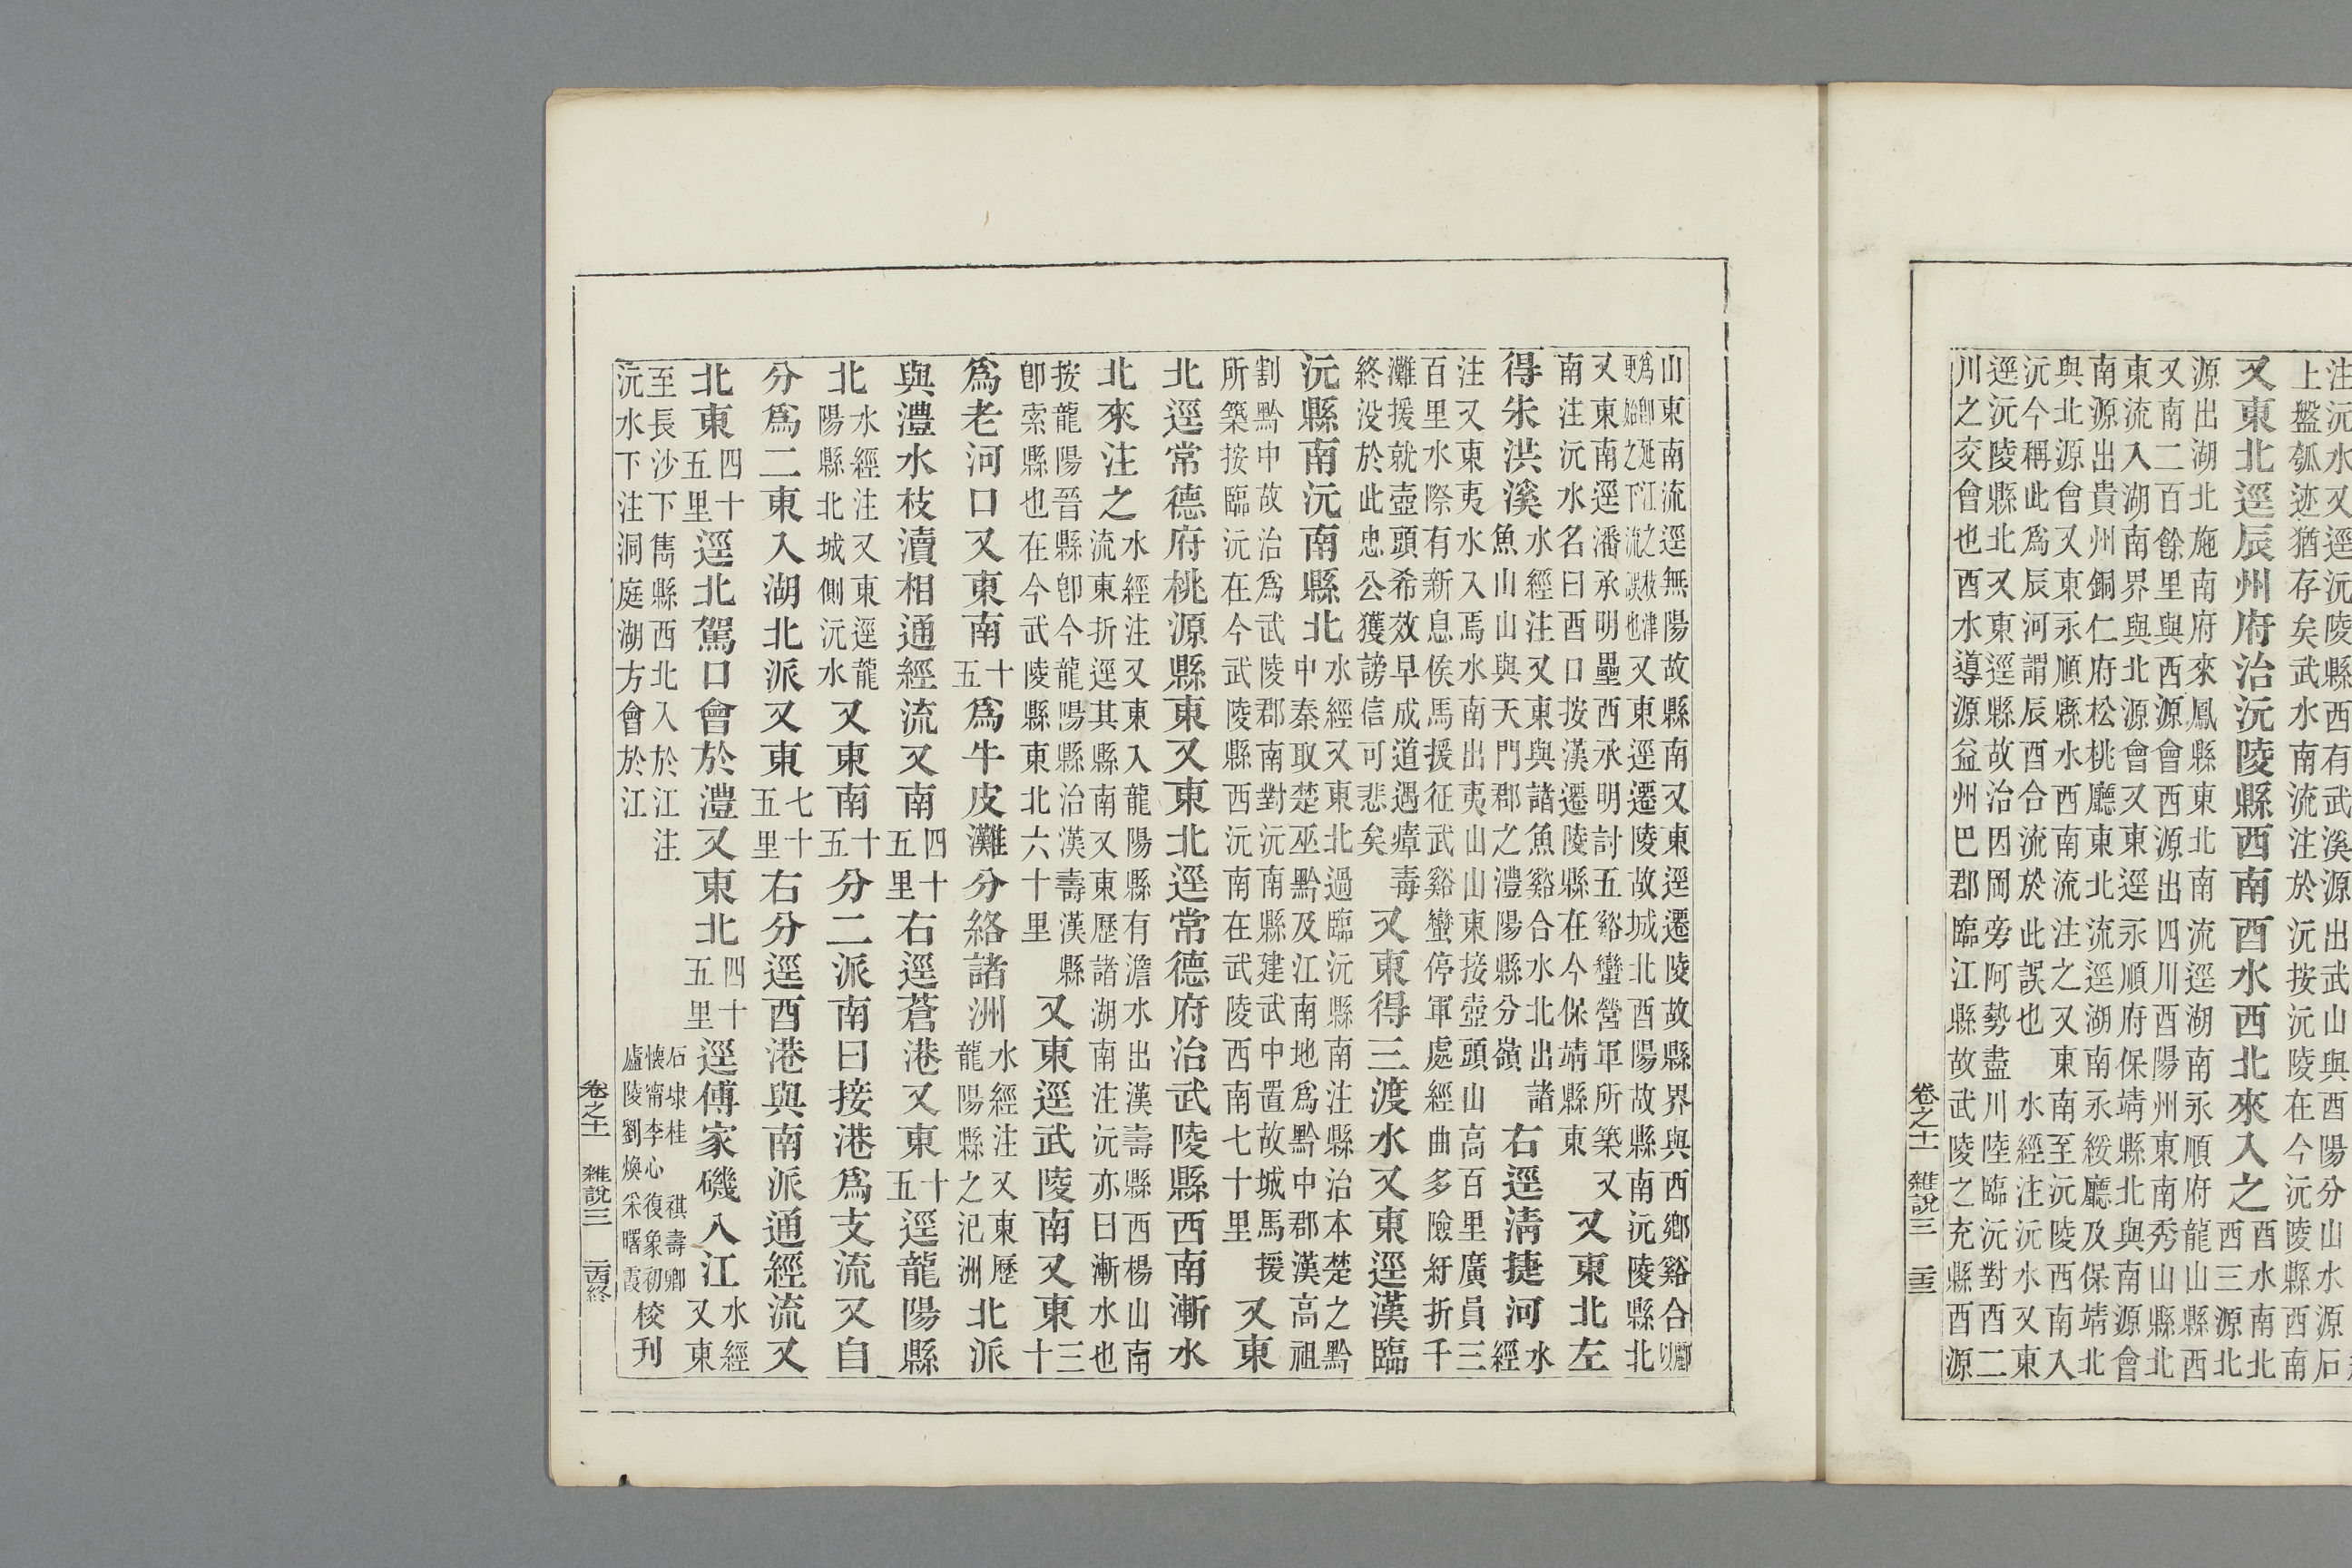 注沅水又逕沅陵縣西有武溪源出武山與酉陽分山水源石
上盤瓠迹猶存矣武水南流注於沅按沅陵在今沅陵縣西南
又東北逕辰州府治沅陵縣西南酉水西北來入之酉水南北西三源北
源出湖北施南府來鳳縣東北南流逕湖南永順府龍山縣西
又南二百餘里與西源會西源出四川酉陽州東南秀山縣北
東流入湖南界與北源會又東逕永順府保靖縣北與南源會
南源出貴州銅仁府松桃廳東北流逕湖南永綏廳及保靖北
與北源會又東永順縣水西南流注之又東南至沅陵西南入
沅今稱此爲辰河謂辰酉合流於此誤也 水經注沅水又東
逕沅陵縣北又東逕縣故治因岡旁阿勢盡川陸臨沅對酉二
川之交會也酉水導源益州巴郡臨江縣故武陵之充縣酉源
卷之十一 雜說三 二十三
山東南流逕無陽故縣南又東逕遷陵故縣界與西鄉谿合酈以
爲卽延江之枝津更始之下流誤也又東逕遷陵故城北酉陽故縣南沅陵縣北
又東南逕潘承明壘西承明討五谿蠻營軍所築 又
南注沅水名曰酉口按漢遷陵縣在今保靖縣東又東北左
得朱洪溪水經注又東與諸魚谿合水北出諸魚山山與天門郡之澧陽縣分嶺右逕淸捷河水經
注又東夷水入焉水南出夷山山東接壺頭山山高百里廣員三
百里水際有新息侯馬援征武谿蠻停軍處經曲多險紆折千
灘援就壺頭希效早成道遇瘴毒終没於此忠公獲謗信可悲矣又東得三渡水又東逕漢臨
沅縣南沅南縣北水經又東北過臨沅縣南注縣治本楚之黔中秦取楚巫黔及江南地爲黔中郡漢高祖
割黔中故治爲武陵郡南對沅南縣建武中置故城馬援所築按臨沅在今武陵縣西沅南在武陵西南七十里又東
北逕常德府桃源縣東又東北逕常德府治武陵縣西南漸水
北來注之水經注又東入龍陽縣有澹水出漢壽縣西楊山南流東折逕其縣南又東歷諸湖南注沅亦曰漸水也
按龍陽晉縣卽今龍陽縣治漢壽漢縣卽索縣也在今武陵縣東北六十里又東逕武陵南又東三十
爲老河口又東南十五爲牛皮灘分絡諸洲水經注又東歷龍陽縣之汜洲北派
與澧水枝瀆相通經流又南四十五里右逕蒼港又東十五逕龍陽縣
北水經注又東逕龍陽縣北城側沅水又東南十五分二派南曰接港爲支流又自
分爲二東入湖北派又東七十五里右分逕酉港與南派通經流又
北東四十五里逕北駕口會於澧又東北四十五里逕傅家磯入江水經又東
至長沙下雋縣西北入於江 注
沅水下注洞庭湖方會於江
石埭桂 祺壽卿
懷甯李心復象初
廬陵劉煥采曙霞
校刊
卷之十一 雜說三 二十四終